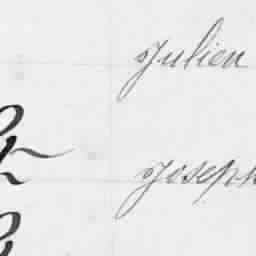 Julien
Joseph